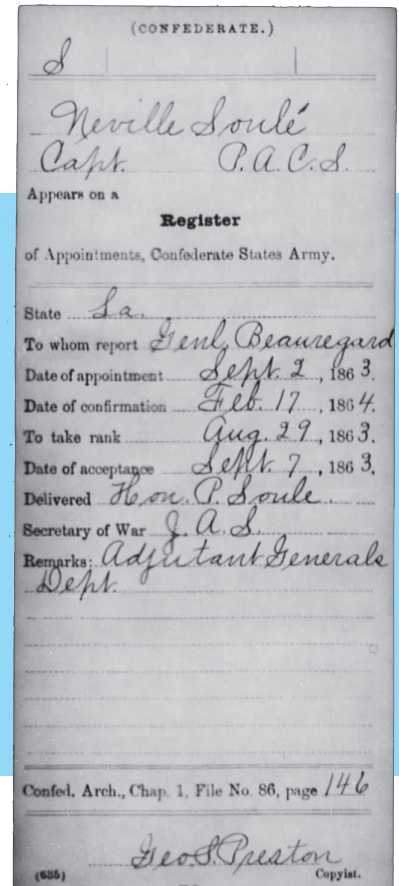 (CONFEDERATE.)
S
Neville Soulé
Capt. P.A.C.S.
Appears on a
Register
of Appointments, Confederate States Army.
State La.
To whom report Genl. Beauregard
Date of appointment Sept. 2, 1863.
Date of confirmation Feb. 17, 1864.
To take rank Aug. 29, 1863.
Date of acceptance Sept. 7, 1863.
Delivered Hon. P. Soule.
Secretary of War J. A. S.
Remarks: Adjutant Generals
Dept.
Confed. Arch., Chap. 1, File No. 86, page 146
Geo. S. Preston
(635) Copyist.